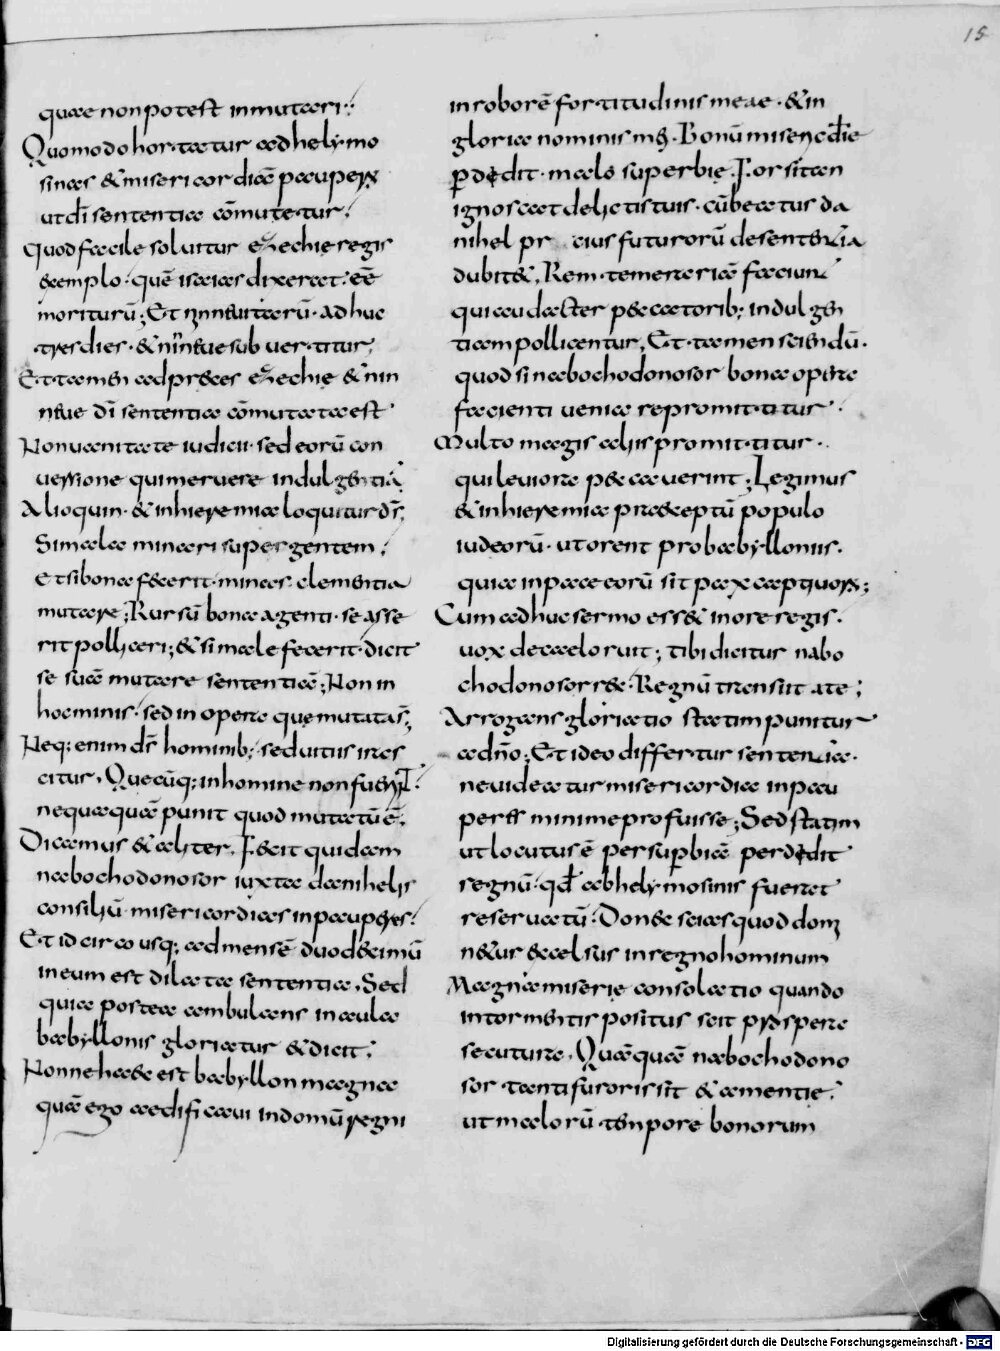 15
quae non potest inmutari;
Quomodo hortatur ad hely mo
sinas & misericordiā pauperx
ut dī sententia cōmutetur;
Quod facile soluitur ezechie regis
exemplo; quē isaias dixerat; eē
moriturū; Et in nineuitarū; Adhuc
tres dies; & nineue subuertitur;
Et tamen ad preces ezechie & nin
neue dī sententia cōmutata est
Non uanitate iudicii; sed eorū con
uersione qui meruere indulgentiā
Alioquin; & in hieremia loquitur ds;
Si mala minari super gentem;
et si bona fecerit; minas clementia
mutare; Rursū bona agenti se asse
rit polliceri; & si male fecerit; dicit
se suā mutare sententiā; Non in
hominis; sed in opere que mutatas;
Neq; enim ds hominib; sed uitiis iras
citur; Quecūq; in homine non fuerīt;
nequaquā punit quod mutatū ē;
Dicamus & aliter; Fecit quidam
nabochodonosor iuxta danihelis
consiliū misericordias in pauperes;
Et idcirco usq; ad mensē duodecimū
in eum est dilata sententia; Sed
quia postea ambulans in aula
babyllonis gloriatur & dicit;
Nonne haec est babyllon magna
quā ego aedificaui in domū regni
in roborē fortitudinis meae & in
gloria nominis mei; Bonū miserecdie
pdedit malo superbie; Forsitan
ignoscat delictis tuis; cū beatus da
nihel pr cius futurorū de sententia
dubitet; Rem temerariā faciunt
qui audacter peccatorib; indulgen
tiam pollicentur; Et tamen sciendū
quod si nabochodonosor bona opere
facienti uenia repromittitur;
Multo magis aliis promittitur;
qui leuiora peccauerint; Legimus
& in hieremia praeceptū populo
iudeorū; ut orent pro babyllonus;
quia in pace eorū sit pax captiuorx;
Cum adhuc sermo ess& in ore regis;
uox de caelo ruit; tibi dicitur nabo
chodonosor rex; Regnū transiit a te;
Arrogans gloriatio statim punitur
a dn̄o; Et ideo differtur sententia;
ne uideatur misericordia in pau
peres minime profuisse; Sed statim
ut locutus ē per supbiā perdedit
regnū; qd ab hely mosinis fuerat
reseruatū; Donec scias quod dom
netur excelsus in regno hominum
Magna miserie consolatio quando
in tormentis positus scit prospera
secutura; Quāquā nabochodono
sor tanti furoris sit & amentie;
ut malorū tempore bonorum
Digitalisierung gefördert durch die Deutsche Forschungsgemeinschaft - DFG